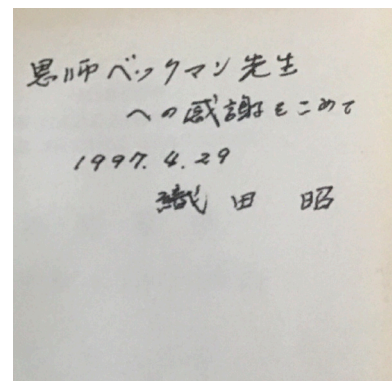 恩師ベックマン先生
への感謝をこめて
1997.4.29
織田 昭